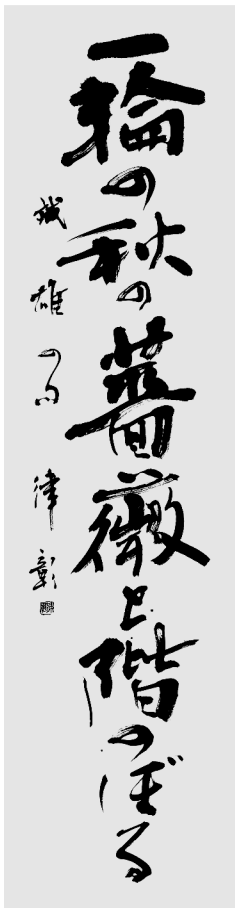 一輪の秋の薔薇と階のぼる
誠雄の句 律彰